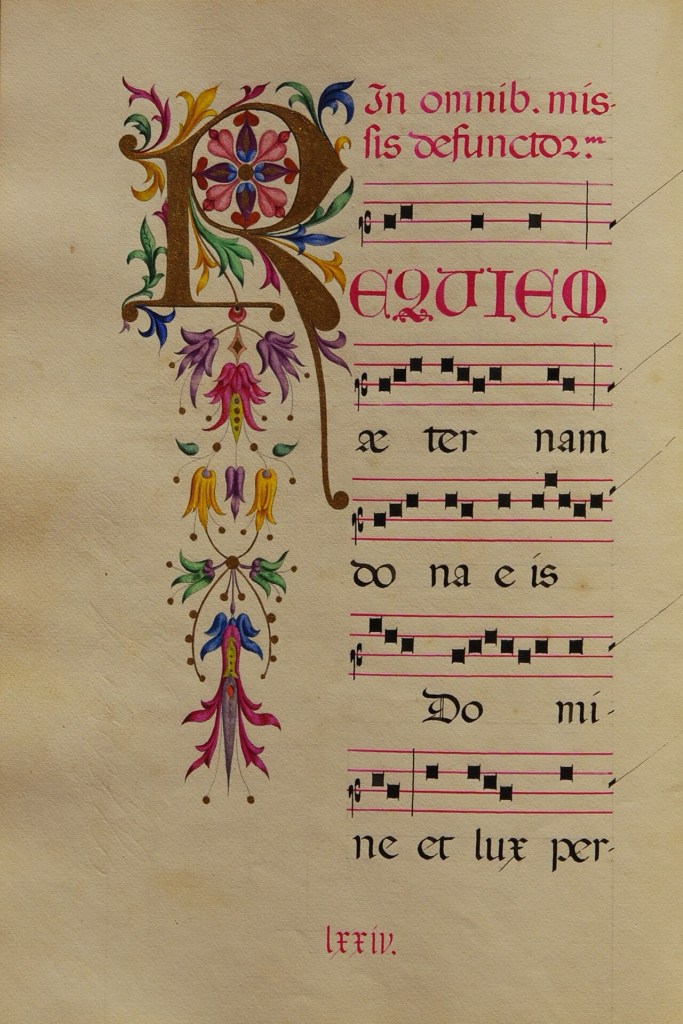 In omnib. mis-
sis defunctor.m
REQUIEM
æ ter nam
do na e is
Do mi-
ne et lux per-
lxxiv.